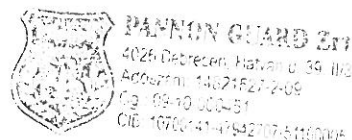 PANNON GUARD Zrt
4026 Debrecen, Hatvan u. 39. II/3
Adószám: 14821527-2-09
Cg.: 09-10-000-51
CIB: 10700141-47942707-51100005